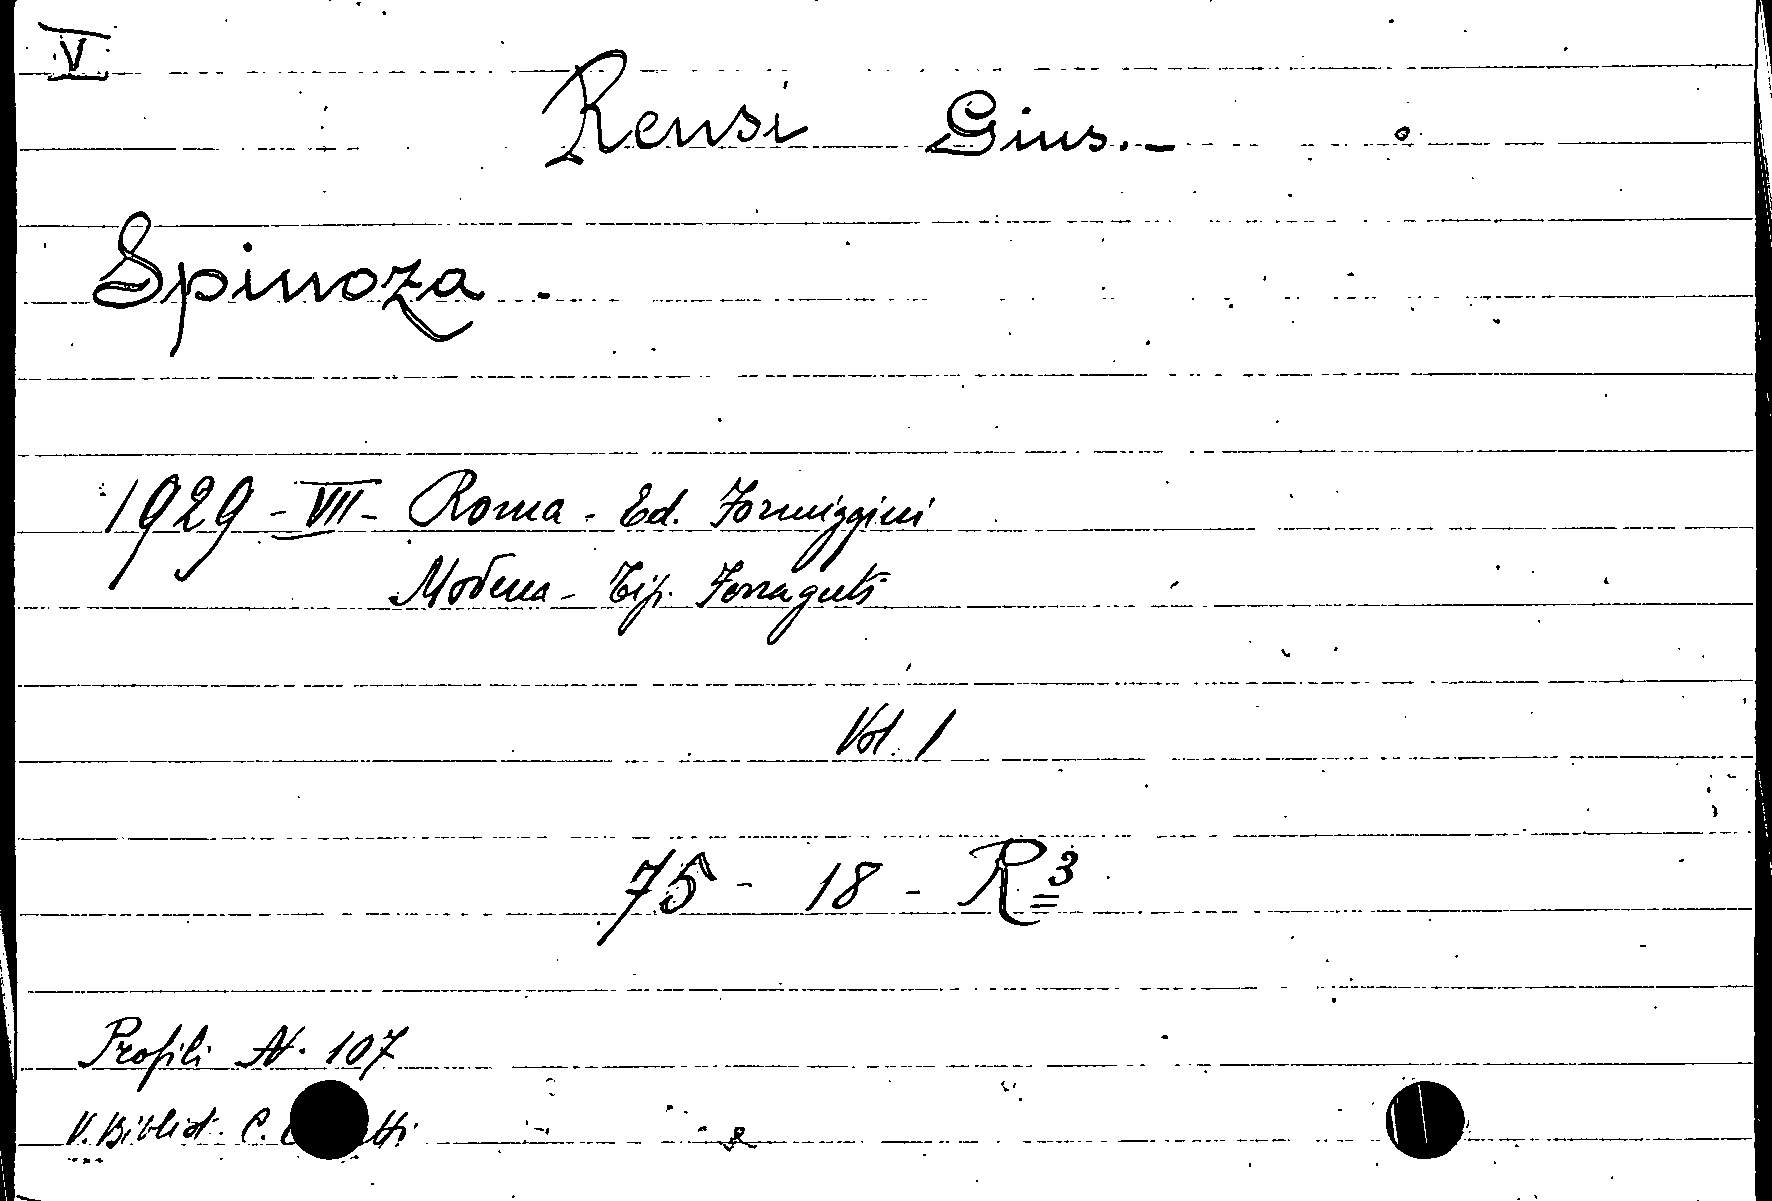 V
Rensi Gius.-
Spinoza.
1929 - VII - Roma - Ed. Formiggini
Modena - Tip. Ferraguti
Vol. 1
75 - 18 - R3
Profili N. 107
V. Bibliot. C.